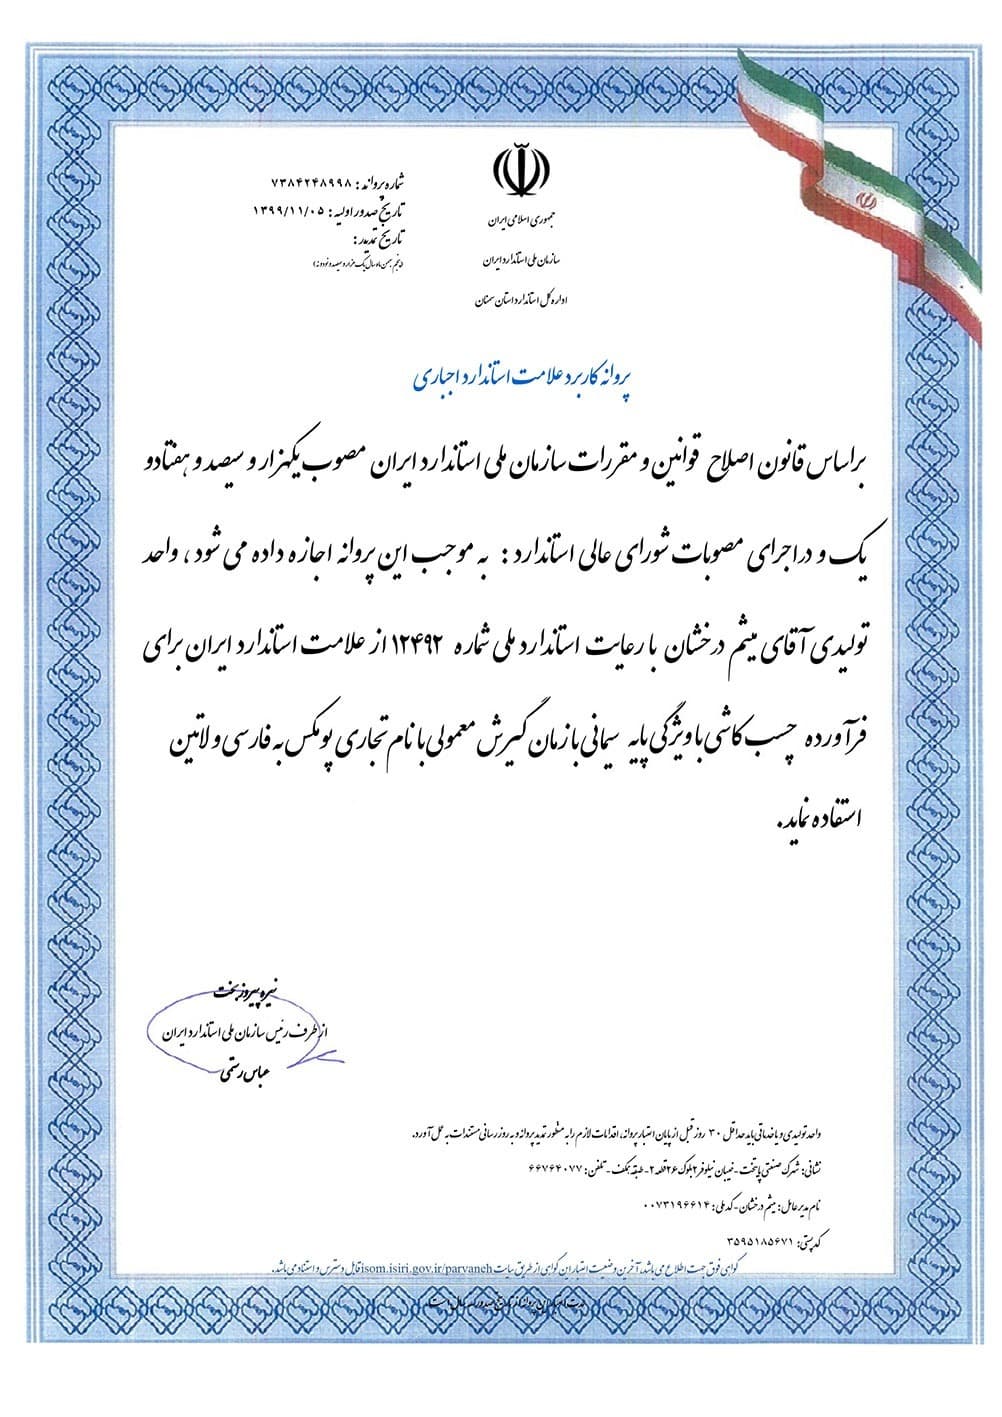 جمهوری اسلامی ایران
سازمان ملی استاندارد ایران
اداره کل استاندارد استان سمنان
شماره پروانه : ۷۳۸۴۲۴۸۹۹۸
تاریخ صدور اولیه : ۱۳۹۹/۱۱/۰۵
تاریخ تمدید :
(پنجم بهمن ماه سال یک هزار و سیصد و نود و نه)
پروانه کاربرد علامت استاندارد اجباری
براساس قانون اصلاح قوانین و مقررات سازمان ملی استاندارد ایران مصوب یکهزار و سیصد و هفتاد و
یک و در اجرای مصوبات شورای عالی استاندارد : به موجب این پروانه اجازه داده می شود ، واحد
تولیدی آقای میثم درخشان با رعایت استاندارد ملی شماره ۱۲۴۹۲ از علامت استاندارد ایران برای
فرآورده چسب کاشی با ویژگی پایه سیمانی با زمان گیرش معمولی با نام تجاری پومکس به فارسی و لاتین
استفاده نماید.
نیره پیروزبخت
از طرف رئیس سازمان ملی استاندارد ایران
عباس رستمی
واحد تولیدی و یا خدماتی باید حداقل ۳۰ روز قبل از پایان اعتبار پروانه، اقدامات لازم را به منظور تمدید پروانه و به روز رسانی مستندات به عمل آورد.
نشانی: شهرک صنعتی پایتخت - خیابان نیلوفر ۲ بلوک ۲۶ قطعه ۲ - طبقه همکف - تلفن: ۶۶۷۶۴۰۷۷
نام مدیر عامل: میثم درخشان - کد ملی: ۰۰۷۳۱۹۶۶۱۴
کد پستی: ۳۵۹۵۱۸۵۶۷۱
گواهی فوق جهت اطلاع می باشد، آخرین وضعیت اعتبار این گواهی از طریق سایت isom.isiri.gov.ir/parvaneh قابل دسترس و استناد می باشد.